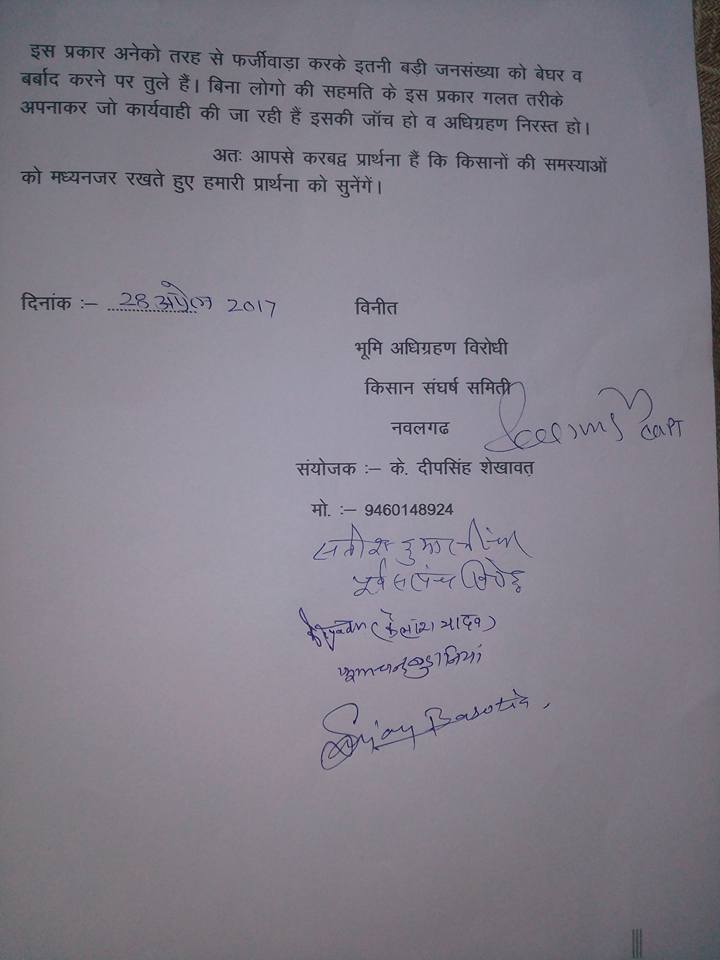 इस प्रकार अनेको तरह से फर्जीवाड़ा करके इतनी बड़ी जनसंख्या को बेघर व
बर्बाद करने पर तुले हैं। बिना लोगो की सहमति के इस प्रकार गलत तरीके
अपनाकर जो कार्यवाही की जा रही हैं इसकी जॉच हो व अधिग्रहण निरस्त हो।
अतः आपसे करबद्व प्रार्थना हैं कि किसानों की समस्याओं
को मध्यनजर रखते हुए हमारी प्रार्थना को सुनेंगें।
दिनांक :– 28 अप्रेल 2017
विनीत
भूमि अधिग्रहण विरोधी
किसान संघर्ष समिती
नवलगढ
CAPT
संयोजक :– के. दीपसिंह शेखावत
मो. :– 9460148924
पूर्व सरपंच
(कैलाश यादव)